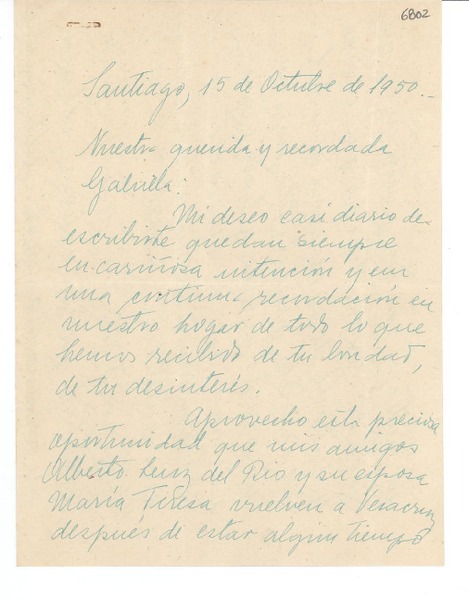 6802
Santiago, 15 de Octubre de 1950.-
Nuestra querida y recordada
Gabriela:
Mi deseo casi diario de
escribirte quedan siempre
en cariñosa intención y en
una continua recordación en
nuestro hogar de todo lo que
hemos recibido de tu bondad,
de tu desinterés.
Aprovecho esta preciosa
oportunidad que mis amigos
Alberto del Río y su esposa
María Teresa vuelven a Veracruz
después de estar algún tiempo